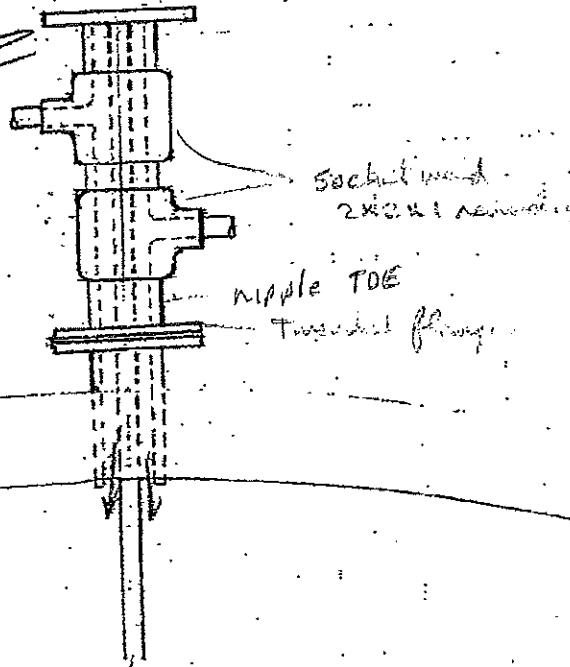 socket weld
2x2x1 reducing
nipple TOE
Threaded flange